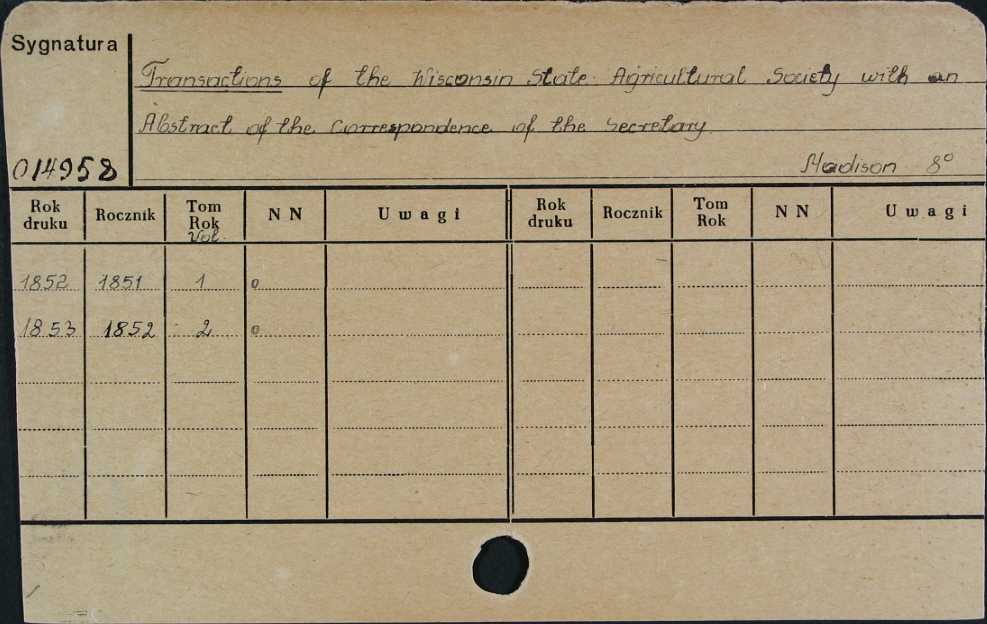 Sygnatura
Transactions of the Wisconsin State Agricultural Society with an
Abstract of the Correspondence of the Secretary.
014958
Madison 8°
Rok druku Rocznik Tom Rok Vol. N N Uwagi Rok druku Rocznik Tom Rok N N Uwagi
1852 1851 1 0
1853 1852 2 0